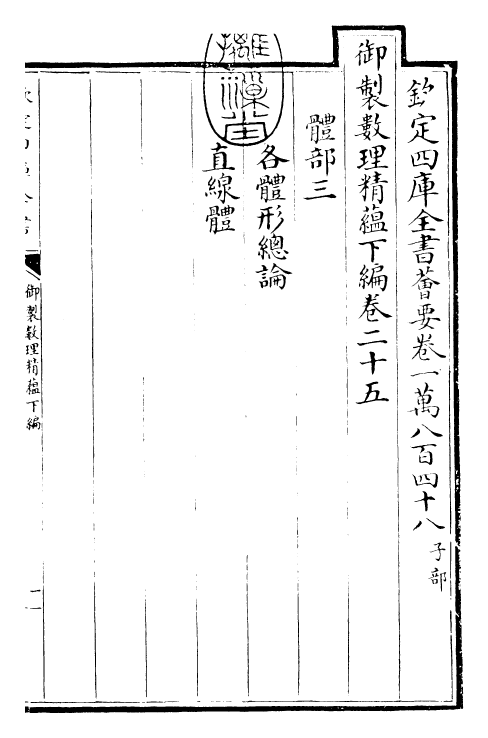 欽定四庫全書薈要卷一萬八百四十八 子部
御製數理精蘊下編卷二十五
體部三
各體形總論
直線體
御製數理精蘊下編